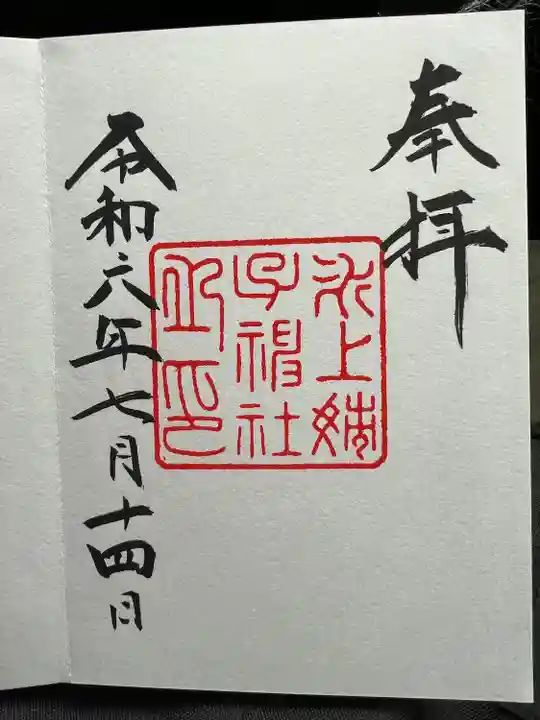 奉拝
氷上姉
子神社
之印
令和六年七月十四日